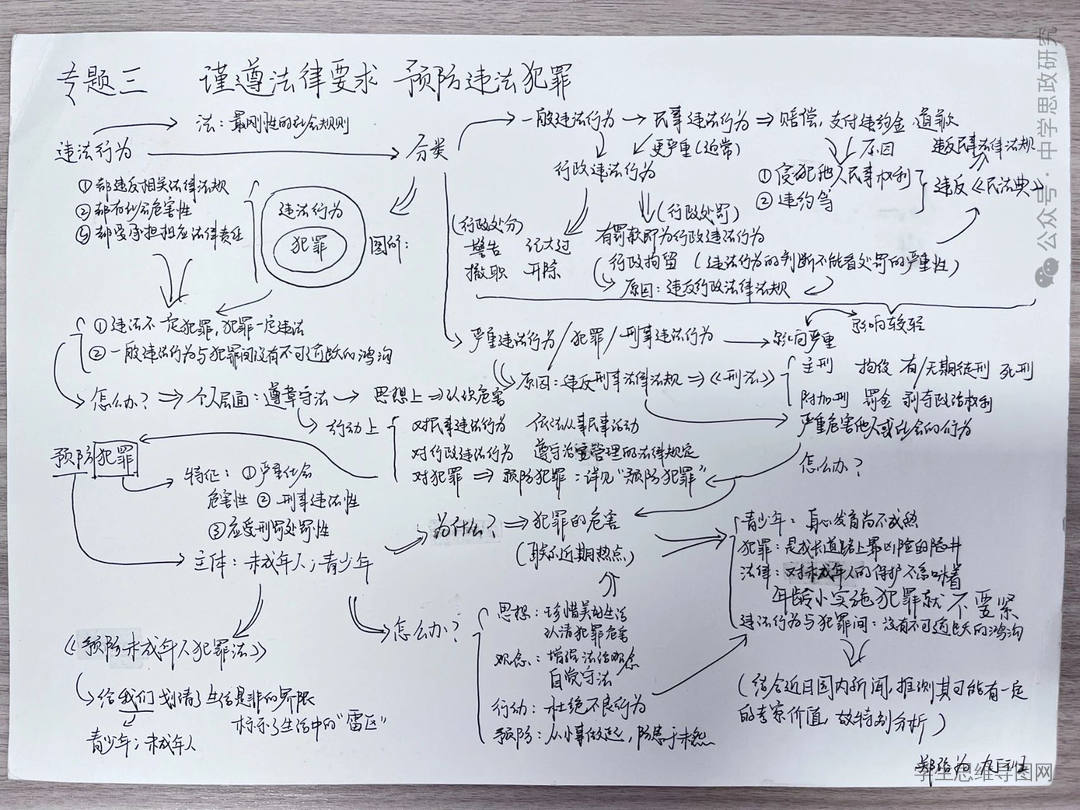 专题三 谨遵法律要求 预防违法犯罪
法：最刚性的社会规则
违法行为
分类
①都违反相关法律法规
②都有社会危害性
③都要承担相应法律责任
违法行为
犯罪
图所：
一般违法行为→民事违法行为⇒赔偿，支付违约金，道歉
更严重（通常）
原因
违反民事法律法规
行政违法行为
①侵犯他人民事权利
②违约等
违反《民法典》
（行政处分）
警告 记大过
撤职 开除
（行政处罚）
有罚款即为行政违法行为
行政拘留（违法行为的判断不能看处罚的严重性）
原因：违反行政法律法规
影响较轻
①违法不一定犯罪，犯罪一定违法
②一般违法行为与犯罪间没有不可逾越的鸿沟
严重违法行为/犯罪/刑事违法行为→影响严重
原因：违反刑事法律法规⇒《刑法》
主刑 拘役 有/无期徒刑 死刑
附加刑 罚金 剥夺政治权利
严重危害他人或社会的行为
怎么办？
怎么办？⇒个人层面：遵章守法→思想上⇒认识危害
行动上
对民事违法行为 依法从事民事活动
对行政违法行为 遵守治安管理的法律规定
对犯罪⇒预防犯罪：详见“预防犯罪”
预防犯罪
特征：①严重社会
危害性②刑事违法性
③应受刑罚处罚性
主体：未成年人；青少年
为什么？⇒犯罪的危害
（联系近期热点）
青少年：身心发育尚不成熟
犯罪：是成长道路上最凶险的陷井
法律：对未成年人的保护不意味着
年龄小实施犯罪就不要紧
违法行为与犯罪间：没有不可逾越的鸿沟
（结合近日国内新闻，推测其可能有一定
的考察价值，故特别分析）
怎么办？
思想：珍惜美好生活
认清犯罪危害
观念：增强法治观念
自觉守法
行动：杜绝不良行为
预防：从小事做起，防患于未然
《预防未成年人犯罪法》
给我们划清了生活是非的界限
标示了生活中的“雷区”
青少年；未成年人
公众号·中学思政研究
学生思维导图网